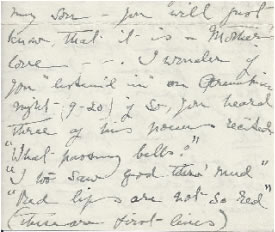 my son – you will just
know that it is a Mother's
love – – . I wonder if
you "listen'd in" on
night – (9-20) if so, you heard
three of his poems recited
"What passing bells?"
"I too saw god thro' mud"
"Red lips are not so red"
(these are first lines)